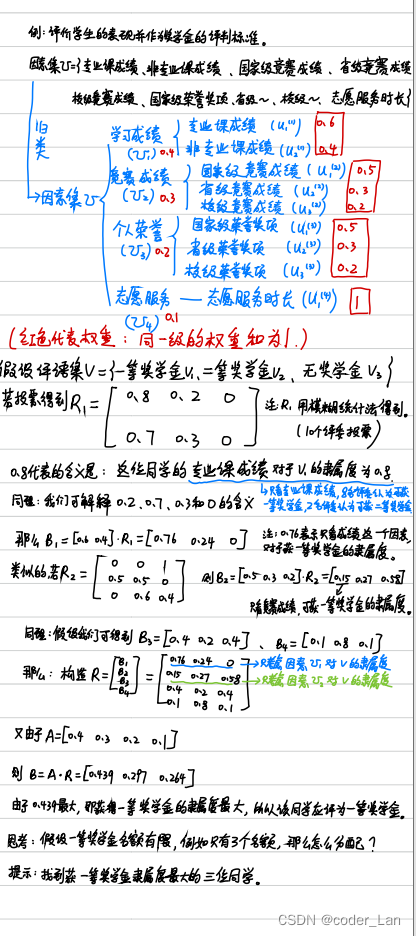 例：评价学生的表现并作为奖学金的评判标准。
因素集U={专业课成绩、非专业课成绩、国家级竞赛成绩、省级竞赛成绩
校级竞赛成绩、国家级荣誉奖项、省级～、校级～、志愿服务时长}
归类
→因素集U
学习成绩 (U₁) 0.4
专业课成绩 (u₁⁽¹⁾) 0.6
非专业课成绩 (u₂⁽¹⁾) 0.4
竞赛成绩 (U₂) 0.3
国家级竞赛成绩 (u₁⁽²⁾) 0.5
省级竞赛成绩 (u₂⁽²⁾) 0.3
校级竞赛成绩 (u₃⁽²⁾) 0.2
个人荣誉 (U₃) 0.2
国家级荣誉奖项 (u₁⁽³⁾) 0.5
省级荣誉奖项 (u₂⁽³⁾) 0.3
校级荣誉奖项 (u₃⁽³⁾) 0.2
志愿服务 — 志愿服务时长 (u₁⁽⁴⁾) 1
(U₄) 0.1
(红色代表权重：同一级的权重和为1.)
假设评语集V={一等奖学金V₁、二等奖学金V₂、无奖学金V₃}
若投票得到R₁= [0.8 0.2 0
0.7 0.3 0]
注：R₁用模糊统计法得到.
(10个评委投票)
0.8代表的含义是：这位同学的专业课成绩对于V₁的隶属度为0.8
同理：我们可解释0.2、0.7、0.3和0的含义
那么 B₁=[0.6 0.4]·R₁=[0.76 0.24 0]
注：0.76表示只看成绩这一个因素，
对于获一等奖学金的隶属度。
类似的若R₂= [0 0 1
0.5 0.5 0
0 0.6 0.4]
则B₂=[0.5 0.3 0.2]·R₂=[0.15 0.27 0.58]
只看竞赛成绩，可获一等奖学金的隶属度。
同理：假设我们可得到 B₃=[0.4 0.2 0.4]、B₄=[0.1 0.8 0.1]
那么：构造 R=[B₁ B₂ B₃ B₄]=
[0.76 0.24 0 →只考虑因素U₁对V的隶属度
0.15 0.27 0.58 →只考虑因素U₂对V的隶属度
0.4 0.2 0.4
0.1 0.8 0.1]
又由于A=[0.4 0.3 0.2 0.1]
则 B=A·R=[0.439 0.297 0.264]
由于0.439最大，即获得一等奖学金的隶属度最大，所以该同学应评为一等奖学金。
思考：假设一等奖学金名额有限，例如只有3个名额，那么怎么分配？
提示：找到获一等奖学金隶属度最大的三位同学。
CSDN @coder_Lan